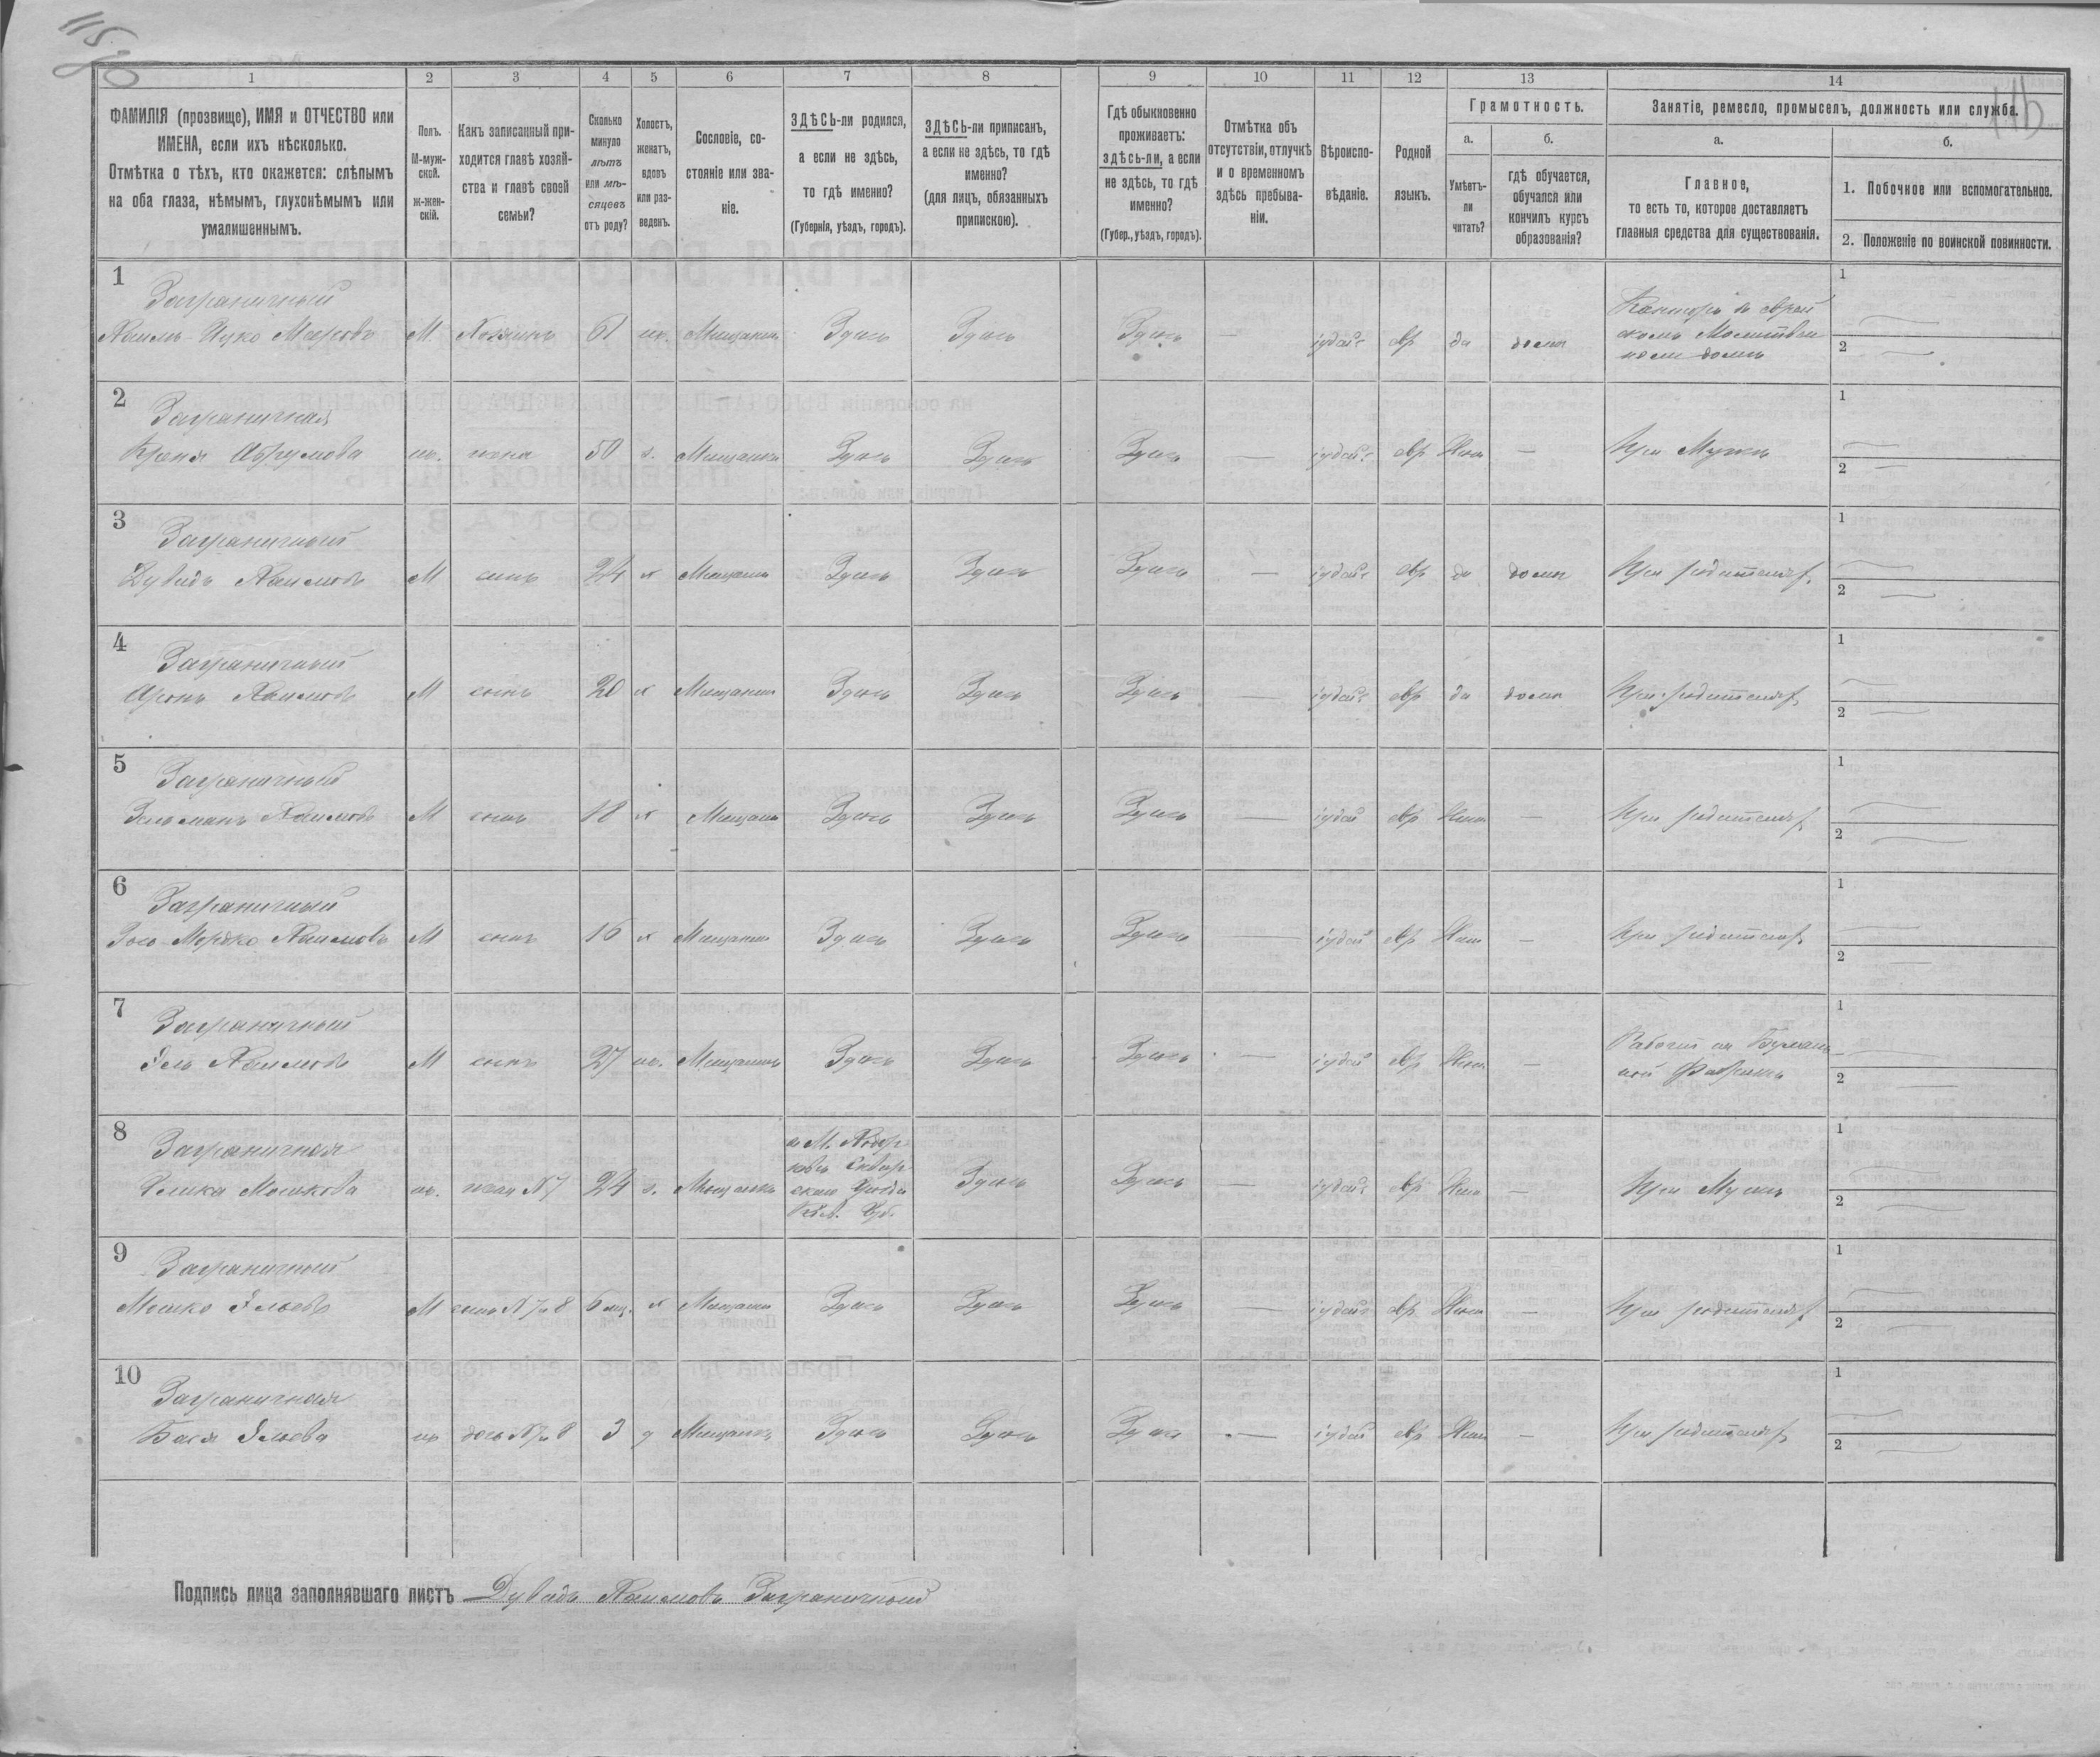 115об
116
1 2 3 4 5 6 7 8 9 10 11 12 13 14
ФАМИЛІЯ (прозвище), ИМЯ и ОТЧЕСТВО или
ИМЕНА, если ихъ нѣсколько.
Отмѣтка о тѣхъ, кто окажется: слѣпымъ
на оба глаза, нѣмымъ, глухонѣмымъ или
умалишеннымъ.
Полъ.
М-муж-
ской.
ж-жен-
скій.
Какъ записанный при-
ходится главѣ хозяй-
ства и главѣ своей
семьи?
Сколько
минуло
лѣтъ
или мѣ-
сяцевъ
отъ роду?
Холостъ,
женатъ,
вдовъ
или раз-
веденъ.
Сословіе, со-
стояніе или зва-
ніе.
ЗДѢСЬ-ли родился,
а если не здѣсь,
то гдѣ именно?
(Губернія, уѣздъ, городъ).
ЗДѢСЬ-ли приписанъ,
а если не здѣсь, то гдѣ
именно?
(для лицъ, обязанныхъ
припискою).
Гдѣ обыкновенно
проживаетъ:
здѣсь-ли, а если
не здѣсь, то гдѣ
именно?
(Губер., уѣздъ, городъ).
Отмѣтка объ
отсутствіи, отлучкѣ
и о временномъ
здѣсь пребыва-
ніи.
Вѣроиспо-
вѣданіе.
Родной
языкъ.
Грамотность.
а.
Умѣетъ-
ли
читать?
б.
гдѣ обучается,
обучался или
кончилъ курсъ
образованія?
Занятіе, ремесло, промыселъ, должность или служба.
а.
Главное,
то есть то, которое доставляетъ
главныя средства для существованія.
б.
1. Побочное или вспомогательное.
2. Положеніе по воинской повинности.
1
Заграничный
Хаимъ-Ицко Мееровъ М Хозяинъ 61 ж. Мещанинъ Здѣсь Здѣсь Здѣсь — іудейс евр да дома
Канторъ въ еврей
скомъ Молитвен
номъ домѣ
1
2
2
Заграничная
Креня Абрумова ж. жена 50 з. Мещанка Здѣсь Здѣсь Здѣсь — іудейс евр Нѣтъ — При Мужѣ
1
2
3
Заграничный
Дувидъ Хаимовъ М сынъ 24 х Мещанинъ Здѣсь Здѣсь Здѣсь — іудейс евр да дома При родителяхъ
1
2
4
Заграничный
Аронъ Хаимовъ М сынъ 20 х Мещанинъ Здѣсь Здѣсь Здѣсь — іудейс евр да дома При родителяхъ
1
2
5
Заграничный
Зельманъ Хаимовъ М сынъ 18 х Мещанинъ Здѣсь Здѣсь Здѣсь — іудей евр Нѣтъ — При родителяхъ
1
2
6
Заграничный
Мордко Хаимовъ М сынъ 16 х Мещанинъ Здѣсь Здѣсь Здѣсь — іудей евр Нѣтъ — При родителяхъ
1
2
7
Заграничный
Эль Хаимовъ М сынъ 27 ж. Мещанинъ Здѣсь Здѣсь Здѣсь — іудей евр Нѣтъ —
Рабочій на Бумаж
ной Фабрикѣ
1
2
8
Заграничная
Мошкова ж. жена №7 24 з. Мещанка
в М. Ходор
ковъ Сквир
скаго Уѣзда
Кіев. Губ.
Здѣсь Здѣсь — іудейс евр Нѣтъ — При Мужѣ
1
2
9
Заграничный
Мошко Эльевъ М сынъ №7и8 6 мц. х Мещанинъ Здѣсь Здѣсь Здѣсь — іудейс евр Нѣтъ — При родителяхъ
1
2
10
Заграничная
Бася Эльева ж дочь №7и8 3 д Мещанка Здѣсь Здѣсь Здѣсь — іудей евр Нѣтъ — При родителяхъ
1
2
Подпись лица заполнявшаго листъ Дувидъ Хаимовъ Заграничный